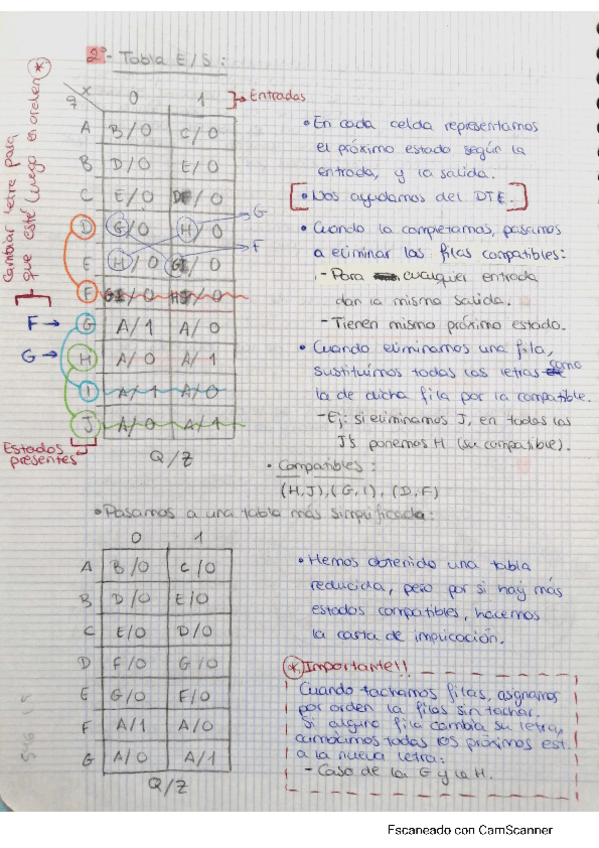 2º- Tabla E/S:
Cambiar letra para
que esté luego en orden *
x
q
0 1
Entradas
A B/0 C/0
B D/0 E/0
C E/0 D/0
D G/0 H/0
G
E H/0 G/0
F
F
G A/1 A/0
F →
H A/0 A/1
G →
I A/1 A/0
J A/0 A/1
Estados
presentes
Q/Z
• En cada celda representamos
el próximo estado según la
entrada, y la salida.
• Nos ayudamos del DTE.
• Cuando la completamos, pasamos
a eliminar las filas compatibles:
- Para cualquier entrada
dan la misma salida.
- Tienen mismo próximo estado.
• Cuando eliminamos una fila,
sustituimos todas las letras como
la de dicha fila por la compatible.
- Ej: si eliminamos J, en todas las
J's ponemos H (su compatible).
• Compatibles:
(H,J), (G,I), (D,F)
• Pasamos a una tabla más simplificada:
0 1
A B/0 C/0
B D/0 E/0
C E/0 D/0
D F/0 G/0
E G/0 F/0
F A/1 A/0
G A/0 A/1
Q/Z
• Hemos obtenido una tabla
reducida, pero por si hay más
estados compatibles, hacemos
la carta de implicación.
* Importante!!
Cuando tachamos filas, asignamos
por orden la filas sin tachar.
Si alguna fila cambia su letra,
cambiamos todas los próximos est.
a la nueva letra:
- Caso de la G y la H.
Escaneado con CamScanner